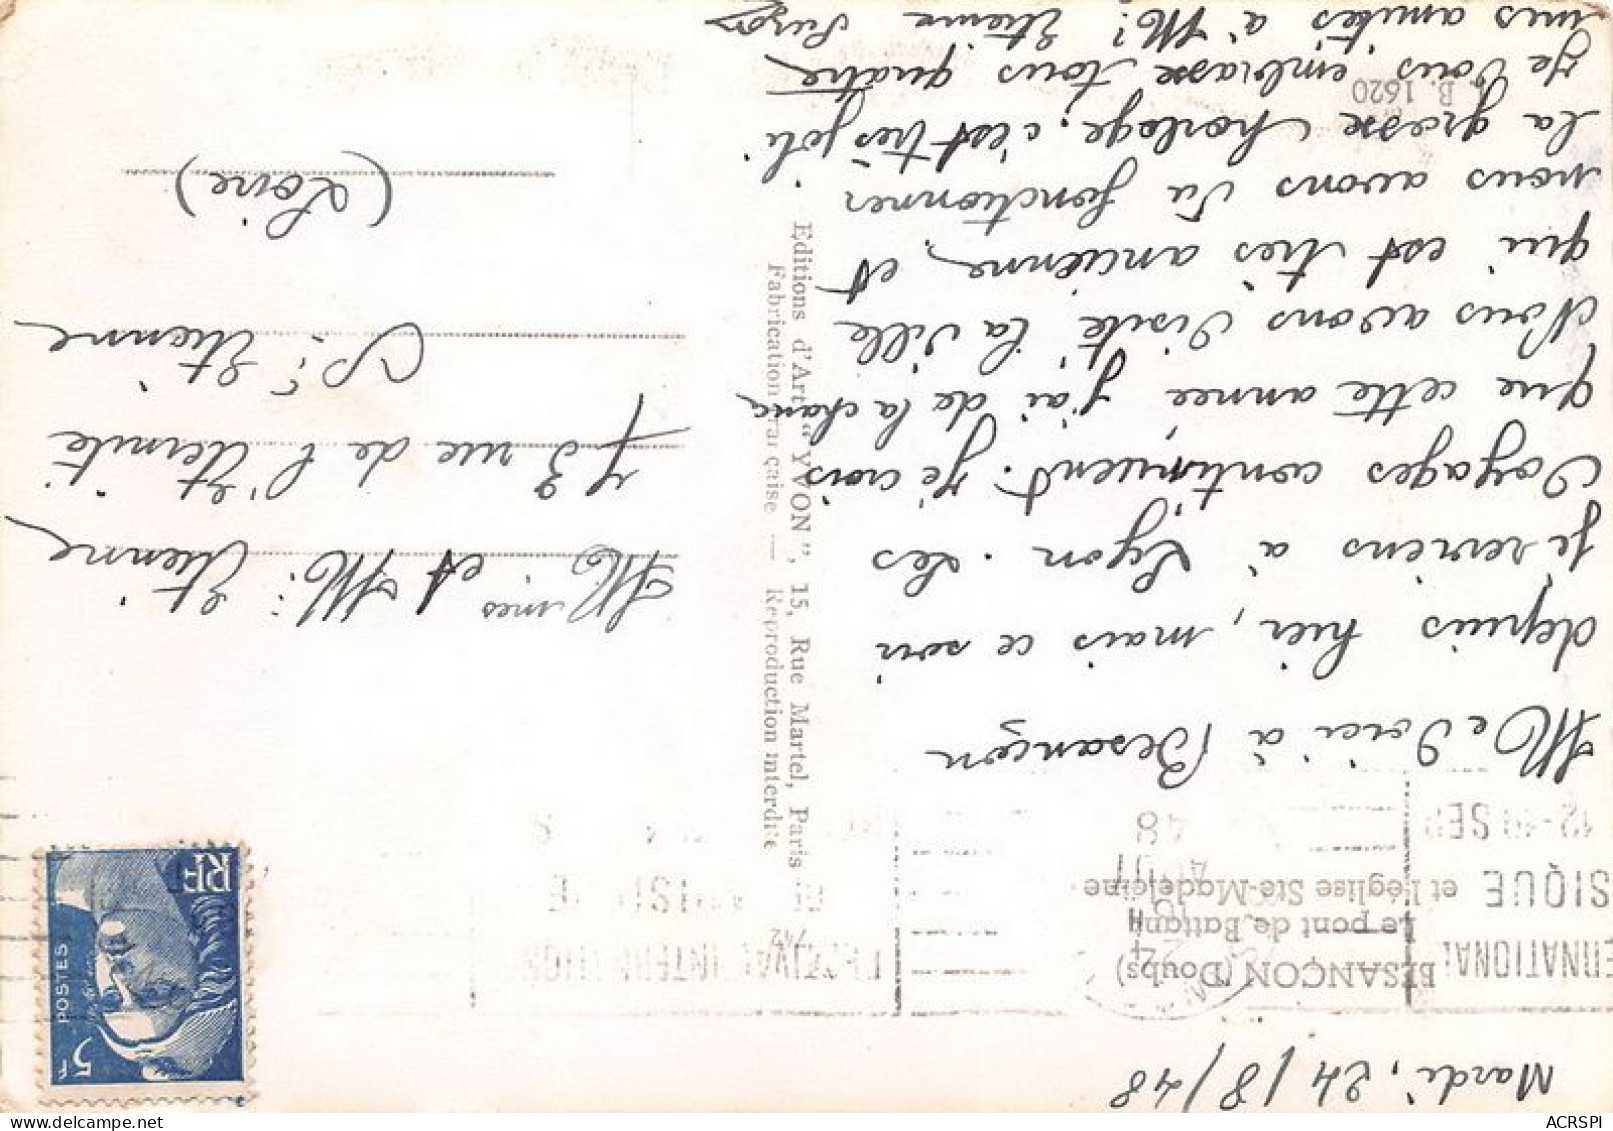 Mardi, 24/8/48
BESANÇON (Doubs)
Le pont de Battant
et l'église Ste-Madeleine
Me Voici à Besançon
depuis hier, mais ce soir
je reviens à Lyon. Les
Voyages continuent. Je crois
que cette année j'ai de la chance
Nous avons Visité la ville
qui est très ancienne, et
nous avons Vu fonctionner
la grosse horloge, c'est très joli.
Je Vous embrasse tous quatre
mes amitiés à Mr Etienne Suzon
B. 1620
742
Editions d'Art "YVON", 15, Rue Martel, Paris
Fabrication française — Reproduction interdite
POSTES
5F
RF
FESTIVAL INTERNATIONAL
DE MUSIQUE
AOUT
48
12-19 SEP
Mmes et Mr Etienne
73 rue de l'Eternité
St Etienne
(Loire)
ACRSPI